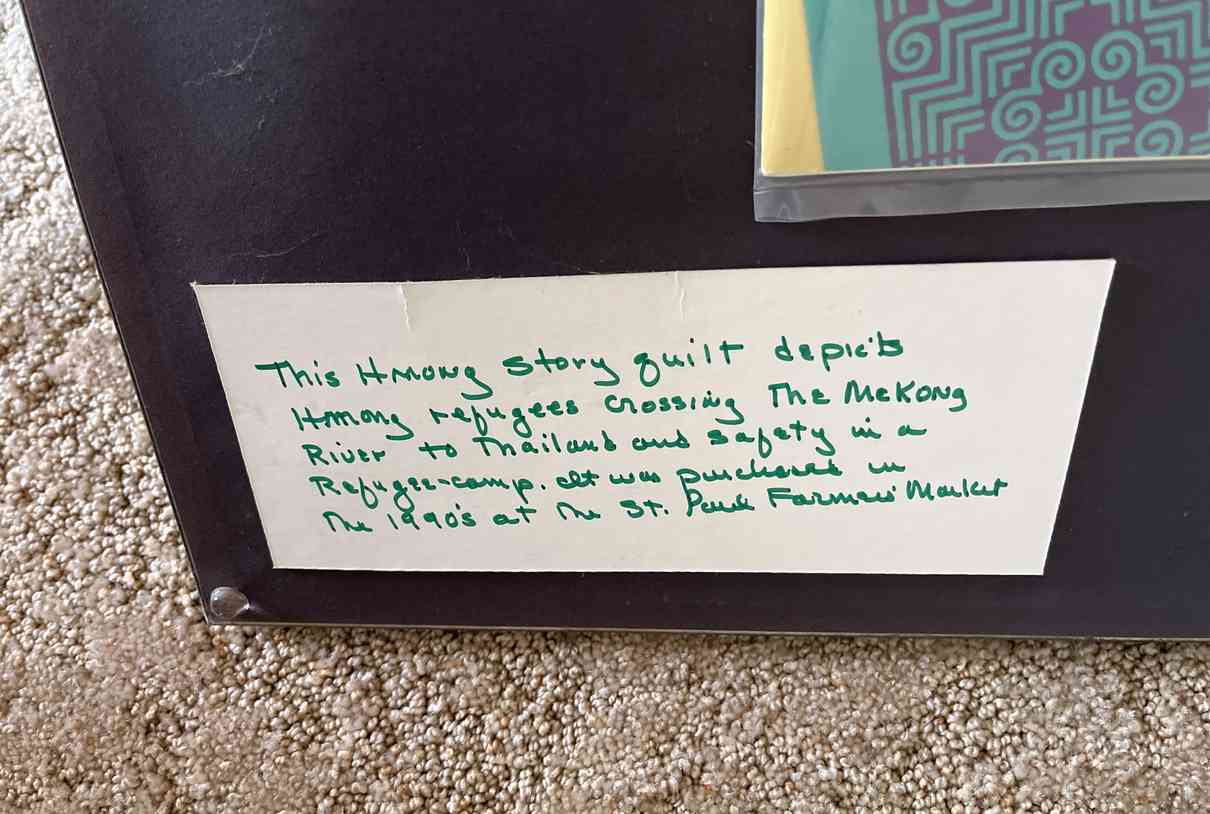 This Hmong Story quilt depicts
Hmong refugees crossing The MeKong
River to Thailand and safety in a
Refugee-camp. It was purchased in
The 1990's at The St. Paul Farmers' Market